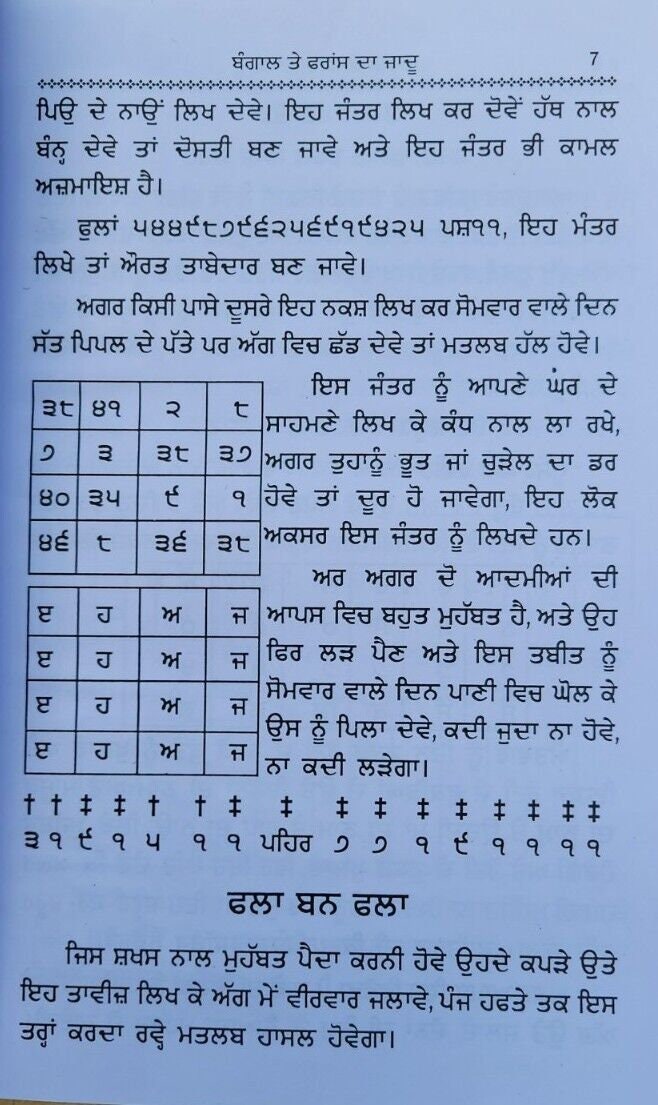 ਬੰਗਾਲ ਤੇ ਫਰਾਂਸ ਦਾ ਜਾਦੂ 7
ਪਿਓ ਦੇ ਨਾਉਂ ਲਿਖ ਦੇਵੇ। ਇਹ ਜੰਤਰ ਲਿਖ ਕਰ ਦੋਵੇਂ ਹੱਥ ਨਾਲ
ਬੰਨ੍ਹ ਦੇਵੇ ਤਾਂ ਦੋਸਤੀ ਬਣ ਜਾਵੇ ਅਤੇ ਇਹ ਜੰਤਰ ਭੀ ਕਾਮਲ
ਅਜ਼ਮਾਇਸ਼ ਹੈ।
ਫੁਲਾਂ ੫੪੪੯੮੭੯੬੨੫੬੯੧੯੪੨੫ ਪਸ਼੧੧, ਇਹ ਮੰਤਰ
ਲਿਖੇ ਤਾਂ ਔਰਤ ਤਾਬੇਦਾਰ ਬਣ ਜਾਵੇ।
ਅਗਰ ਕਿਸੀ ਪਾਸੇ ਦੂਸਰੇ ਇਹ ਨਕਸ਼ ਲਿਖ ਕਰ ਸੋਮਵਾਰ ਵਾਲੇ ਦਿਨ
ਸੱਤ ਪਿਪਲ ਦੇ ਪੱਤੇ ਪਰ ਅੱਗ ਵਿਚ ਛੱਡ ਦੇਵੇ ਤਾਂ ਮਤਲਬ ਹੱਲ ਹੋਵੇ।
੩੮ ੪੧ ੨ ੮
੭ ੩ ੩੮ ੩੭
੪੦ ੩੫ ੯ ੧
੪੬ ੮ ੩੬ ੩੮
ਇਸ ਜੰਤਰ ਨੂੰ ਆਪਣੇ ਘੰਰ ਦੇ
ਸਾਹਮਣੇ ਲਿਖ ਕੇ ਕੰਧ ਨਾਲ ਲਾ ਰਖੇ,
ਅਗਰ ਤੁਹਾਨੂੰ ਭੂਤ ਜਾਂ ਚੁੜੇਲ ਦਾ ਡਰ
ਹੋਵੇ ਤਾਂ ਦੂਰ ਹੋ ਜਾਵੇਗਾ, ਇਹ ਲੋਕ
ਅਕਸਰ ਇਸ ਜੰਤਰ ਨੂੰ ਲਿਖਦੇ ਹਨ।
ੲ ਹ ਅ ਜ
ੲ ਹ ਅ ਜ
ੲ ਹ ਅ ਜ
ੲ ਹ ਅ ਜ
ਅਰ ਅਗਰ ਦੋ ਆਦਮੀਆਂ ਦੀ
ਆਪਸ ਵਿਚ ਬਹੁਤ ਮੁਹੱਬਤ ਹੈ, ਅਤੇ ਉਹ
ਫਿਰ ਲੜ ਪੈਣ ਅਤੇ ਇਸ ਤਬੀਤ ਨੂੰ
ਸੋਮਵਾਰ ਵਾਲੇ ਦਿਨ ਪਾਣੀ ਵਿਚ ਘੋਲ ਕੇ
ਉਸ ਨੂੰ ਪਿਲਾ ਦੇਵੇ, ਕਦੀ ਜੁਦਾ ਨਾ ਹੋਵੇ,
ਨਾ ਕਦੀ ਲੜੇਗਾ।
† † ‡ ‡ † † ‡ ‡ ‡ ‡ ‡ ‡ ‡ ‡ ‡ ‡
੩ ੧ ੯ ੧ ੫ ੧ ੧ ਪਹਿਰ ੭ ੭ ੧ ੯ ੧ ੧ ੧ ੧
ਫਲਾ ਬਨ ਫਲਾ
ਜਿਸ ਸ਼ਖਸ ਨਾਲ ਮੁਹੱਬਤ ਪੈਦਾ ਕਰਨੀ ਹੋਵੇ ਉਹਦੇ ਕਪੜੇ ਉਤੇ
ਇਹ ਤਾਵੀਜ਼ ਲਿਖ ਕੇ ਅੱਗ ਮੇਂ ਵੀਰਵਾਰ ਜਲਾਵੇ, ਪੰਜ ਹਫਤੇ ਤਕ ਇਸ
ਤਰ੍ਹਾਂ ਕਰਦਾ ਰਵ੍ਹੇ ਮਤਲਬ ਹਾਸਲ ਹੋਵੇਗਾ।